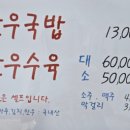 우국밥 13,00
우수육 대 60,00
소 50,000
은 셀프입니다.
소주 맥주 4,
막걸리 3,